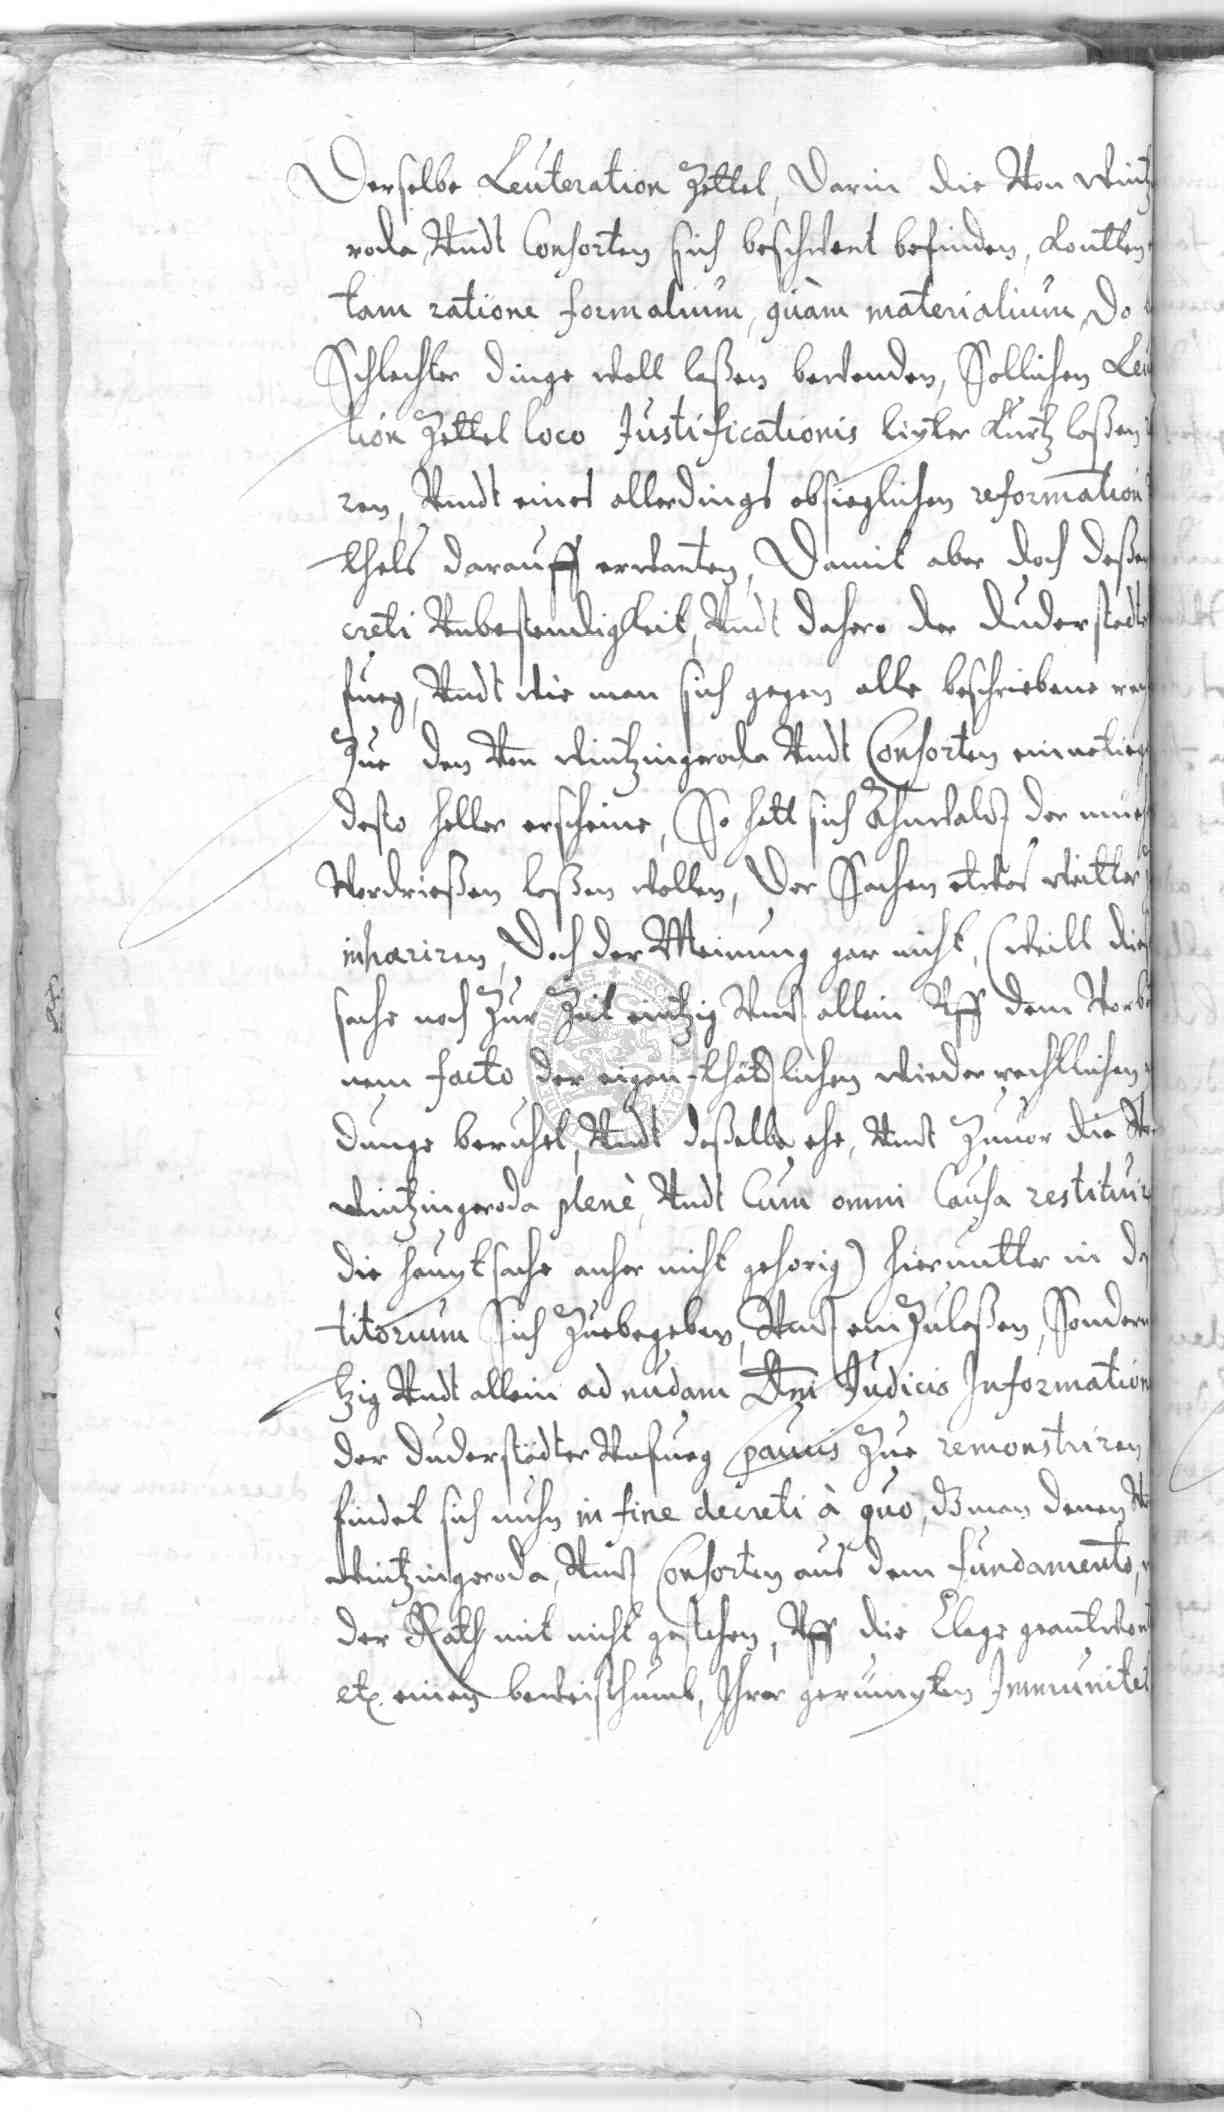 Derselbe Leuteration Zettel, Darin die Von Wintz
roda, Vndt Consorten sich beschwert befinden, Kontten
tam ratione formalium, quàm materialium, Do
Schlechter dinge woll laßen bewenden, Sollichen Leu
tion Zettel loco Justificationis liecter Kurtz laßen
ren, Vndt eines allerdings obsieglichen reformation
thels darauff erwarten, Damit aber doch deßen
creti Vnbestendigkeit, Vndt dahero der Duderstedte
fueg, Vndt wie man sich gegen alle beschriebene re
Zue den Von Wintzingeroda Vndt Consorten einnetieg
desto heller erscheine, So hatt sich Ahnwaldt der mueh
Verdrießen laßen wollen, Der Sachen etwas weitter
inhæriren, Doch der Meinung gar nicht, (weill die
sache noch Zur Zeit eintzig Vndt allein Vff dem Vorbe
nem facto der eigen-thätlichen wiederrechtlichen
dunge beruhet, Vndt deßelbe ehe, Vndt Zuuor die Vo
Wintzingeroda plenè, Vndt Cum omni Causa restituir
die hauptsache anher nicht gehorig) hieruntter in de
titorium Sich Zuebegeben, Vndt einZulaßen, Sondern
tzig Vndt allein ad nudam Dni Judicis Information
der Duderstädter Vnfueg paucis Zue remonstriren
findet sich nuhn in fine decreti à quo, dz man denen Vo
Wintzingeroda, Vndt Consorten aus dem fundamento,
der Rath mit nicht gestehen, Vff die Clage geantwort
etc. einen beweisthumb, Ihrer gerümpten Immunitet